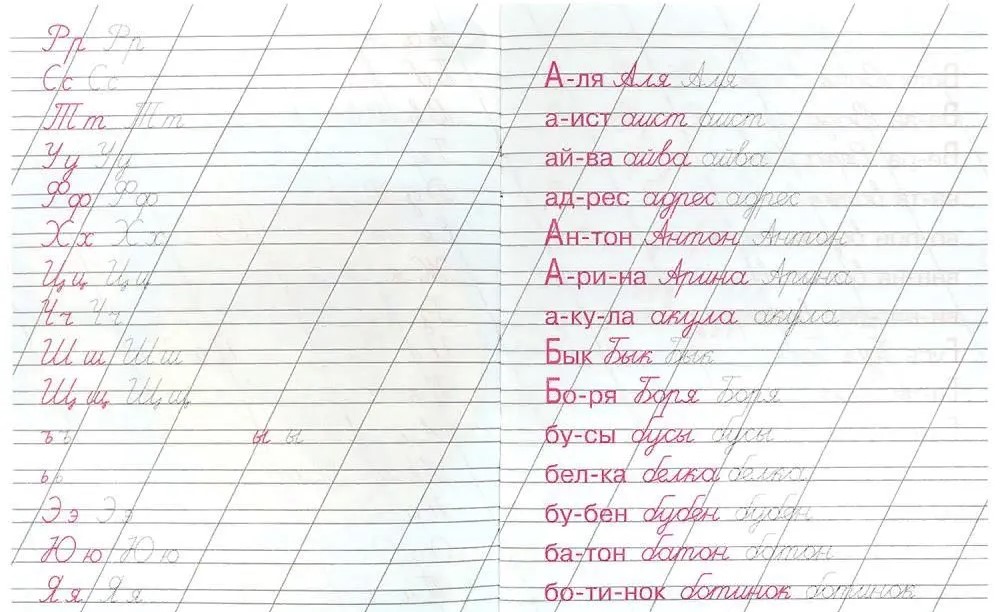 Рр Рр
Сс Сс
Тт Тт
Уу Уу
Фф Фф
Хх Хх
Цц Цц
Чч Чч
Шш Шш
Щщ Щщ
ъ ъ ы ы
ь ь
Ээ Ээ
Юю Юю
Яя Яя
А-ля Аля Аля
а-ист аист аист
ай-ва айва айва
ад-рес адрес адрес
Ан-тон Антон Антон
А-ри-на Арина Арина
а-ку-ла акула акула
Бык Бык Бык
Бо-ря Боря Боря
бу-сы бусы бусы
бел-ка белка белка
бу-бен бубен бубен
ба-тон батон батон
бо-ти-нок ботинок ботинок